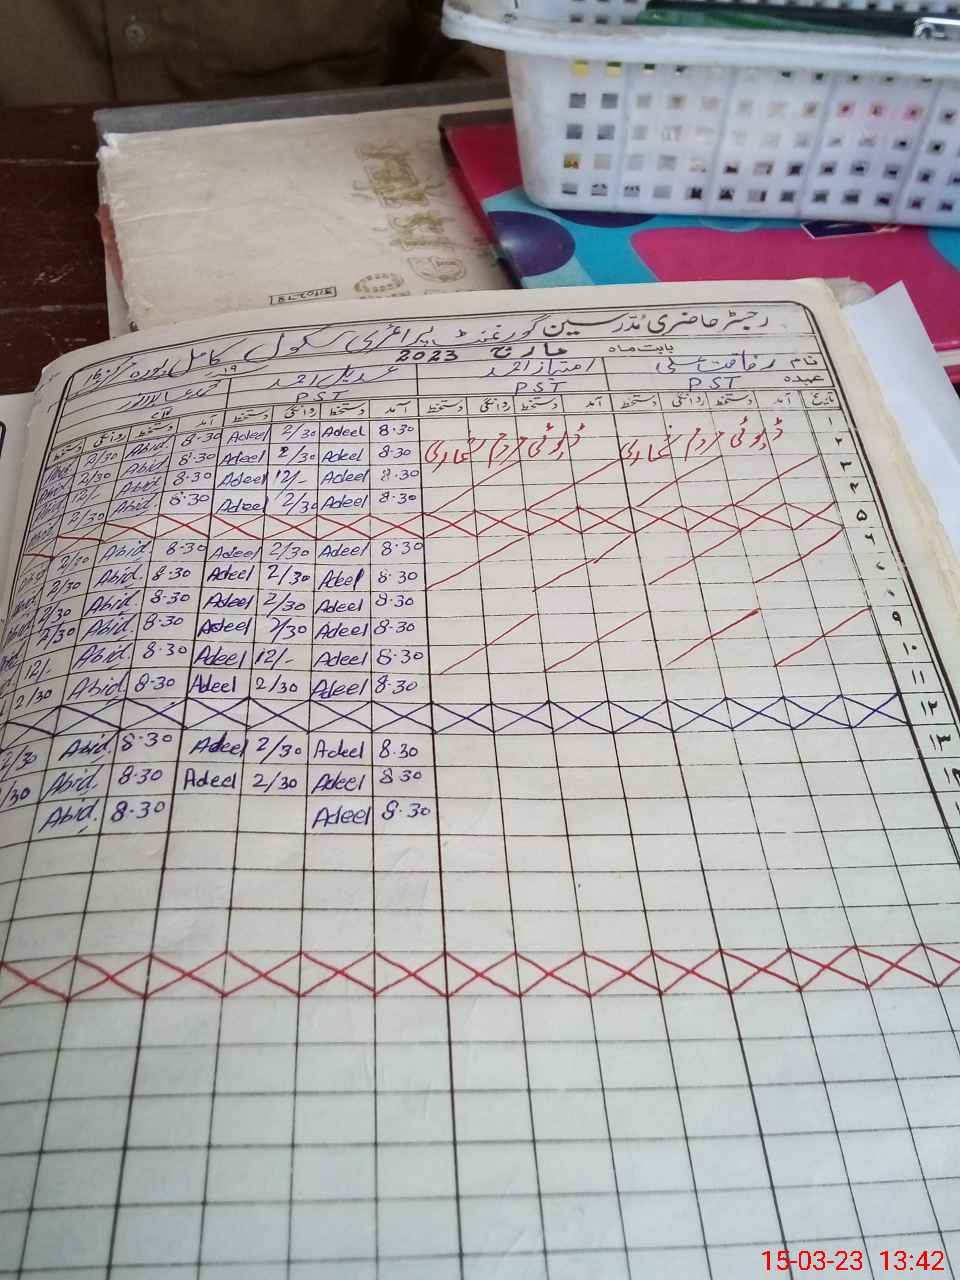 رجسٹر حاضری مدرسین گورنمنٹ پرائمری سکول کامل پوره
بابت ماہ مارچ 2023
نام رفاقت علی امتیاز احمد عدیل احمد
عہدہ PST PST PST
تاریخ آمد دستخط روانگی دستخط آمد دستخط روانگی دستخط آمد دستخط روانگی دستخط آمد دستخط روانگی دستخط
۱ 8.30 Adeel 2/30 Adeel 8.30 Abid 2/30
۲ ڈیوٹی مردم شماری ڈیوٹی مردم شماری 8.30 Adeel 2/30 Adeel 8.30 Abid 2/30
۳ 8.30 Adeel 12/- Adeel 8.30 Abid 12/-
۴ 8.30 Adeel 2/30 Adeel 8.30 Abid 2/30
۵
۶ 8.30 Adeel 2/30 Adeel 8.30 Abid 2/30
8.30 Adeel 2/30 Adeel 8.30 Abid 2/30
8.30 Adeel 2/30 Adeel 8.30 Abid 2/30
۹ 8.30 Adeel 2/30 Adeel 8.30 Abid 2/30
۱۰ 8.30 Adeel 12/- Adeel 8.30 Abid 12/-
۱۱ 8.30 Adeel 2/30 Adeel 8.30 Abid 2/30
۱۲
۱۳ 8.30 Adeel 2/30 Adeel 8.30 Abid 2/30
8.30 Adeel 2/30 Adeel 8.30 Abid 2/30
8.30 Adeel 8.30 Abid
15-03-23 13:42